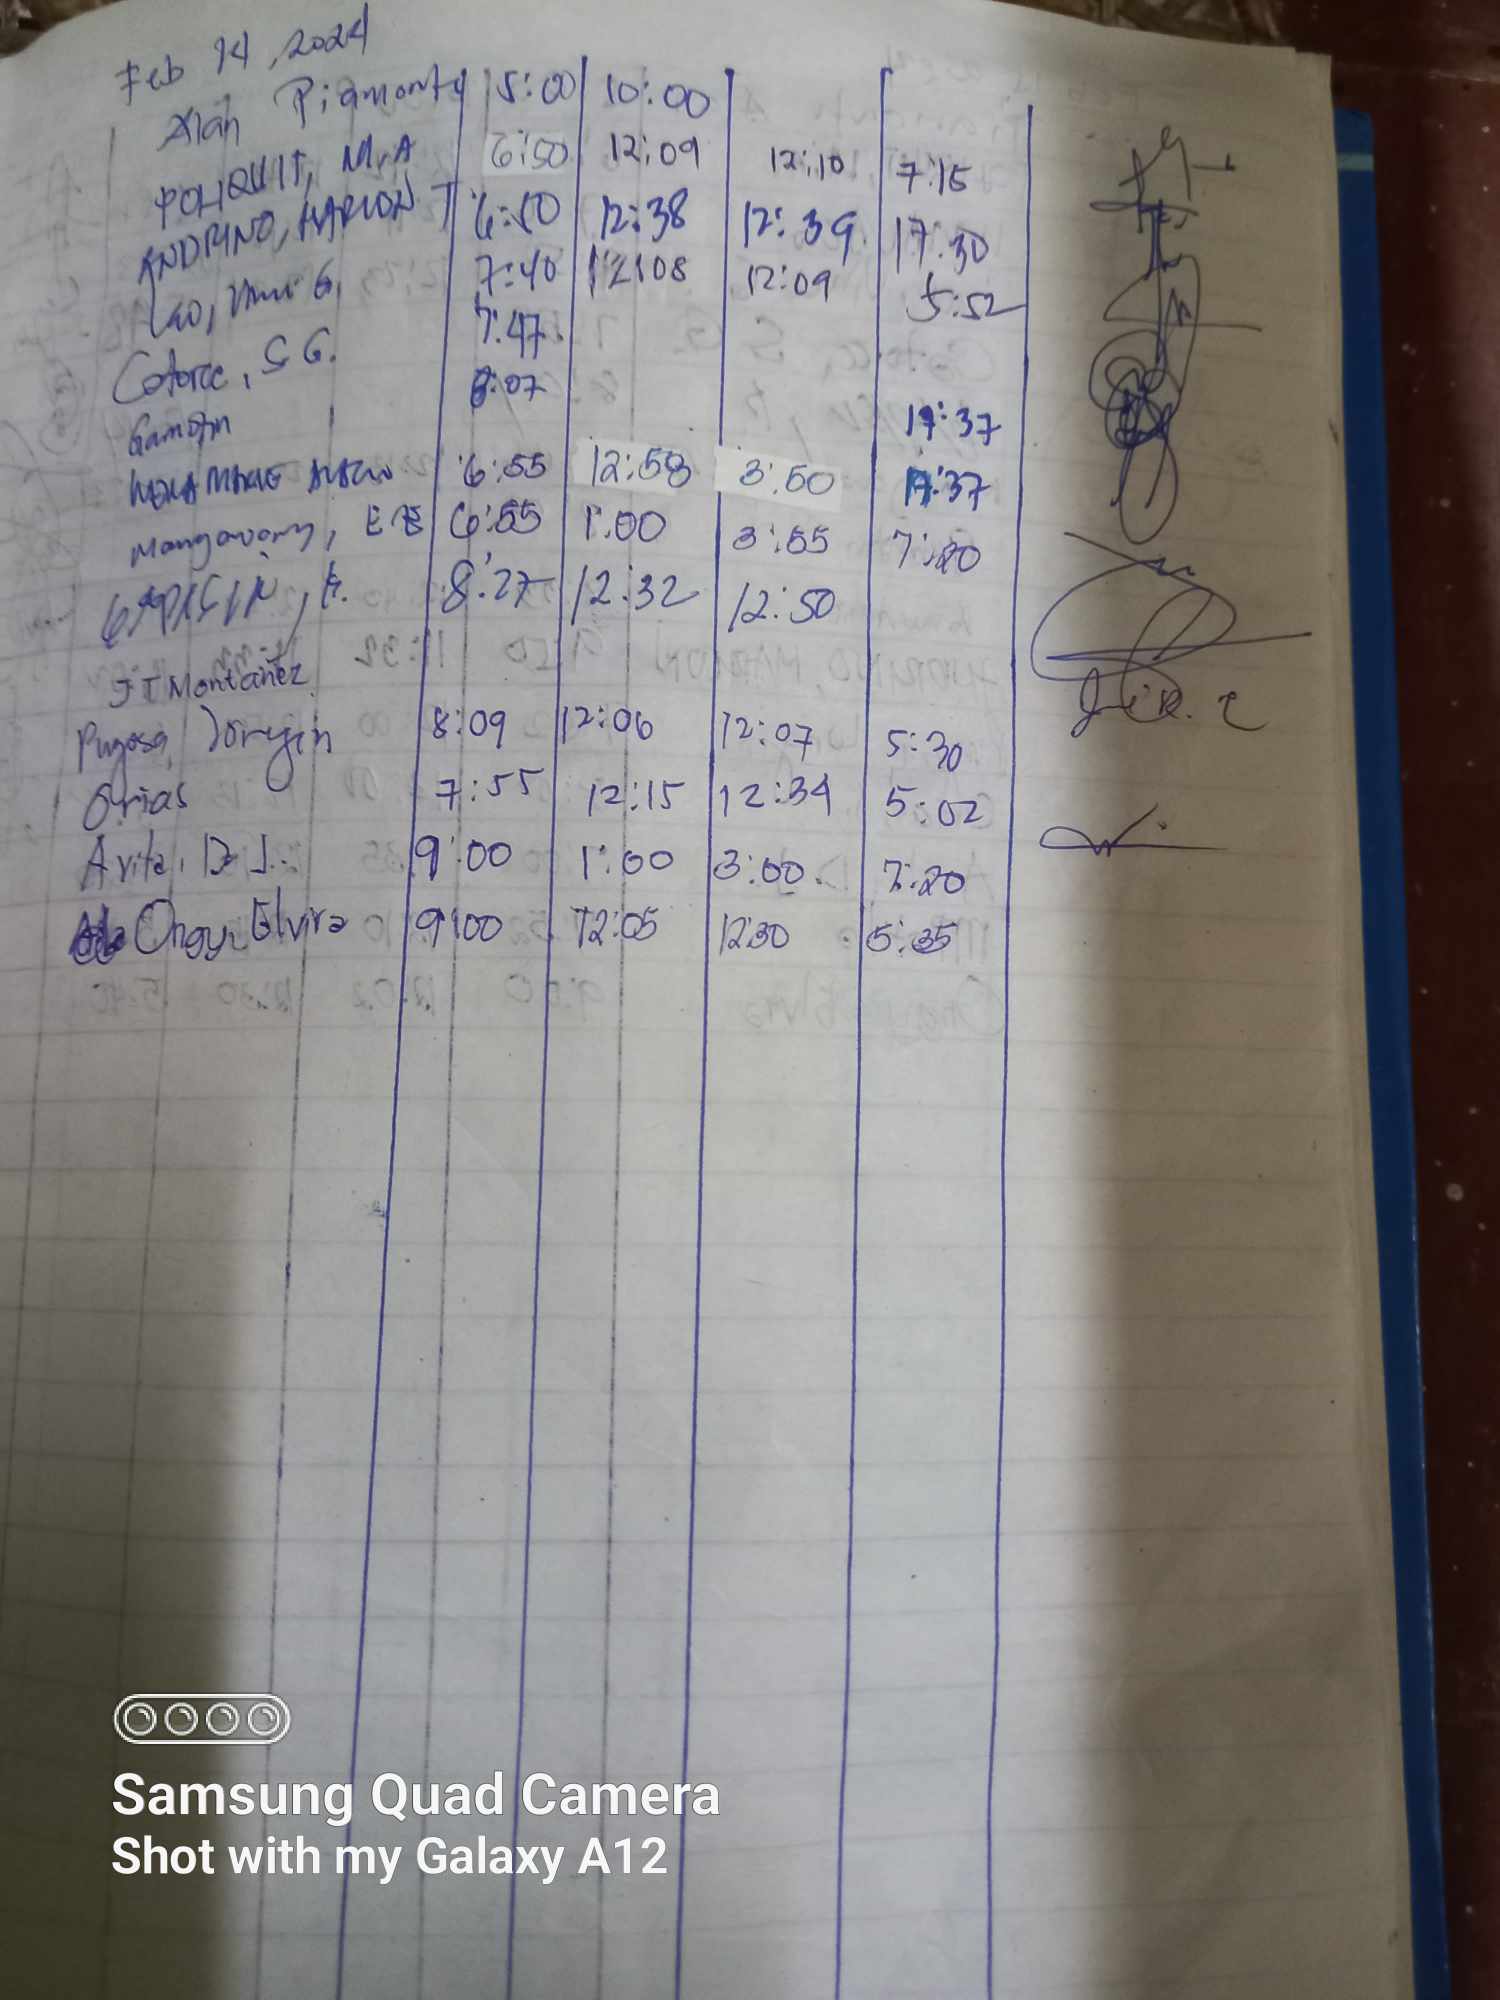 Feb 14, 2024
Alan Piamonte 5:00 10:00
POLIQUIT, M.A 6:50 12:09 12:10 7:15
ANDRINO, MARION T 6:50 12:38 12:39 17:30
Lao, G. 7:40 12:08 12:09 5:52
Cotorce, S G. 7:47
Gamotin 8:07 17:37
6:55 12:58 3:50 17:37
E 6:55 1:00 3:55 7:20
8:27 12:32 12:50
JT Montañez
Pugosa, 8:09 12:06 12:07 5:30
Orias 7:55 12:15 12:34 5:02
Avila, D J. 9:00 1:00 3:00 7:20
Ongy, Elvira 9:00 12:05 12:30 5:35
Samsung Quad Camera
Shot with my Galaxy A12